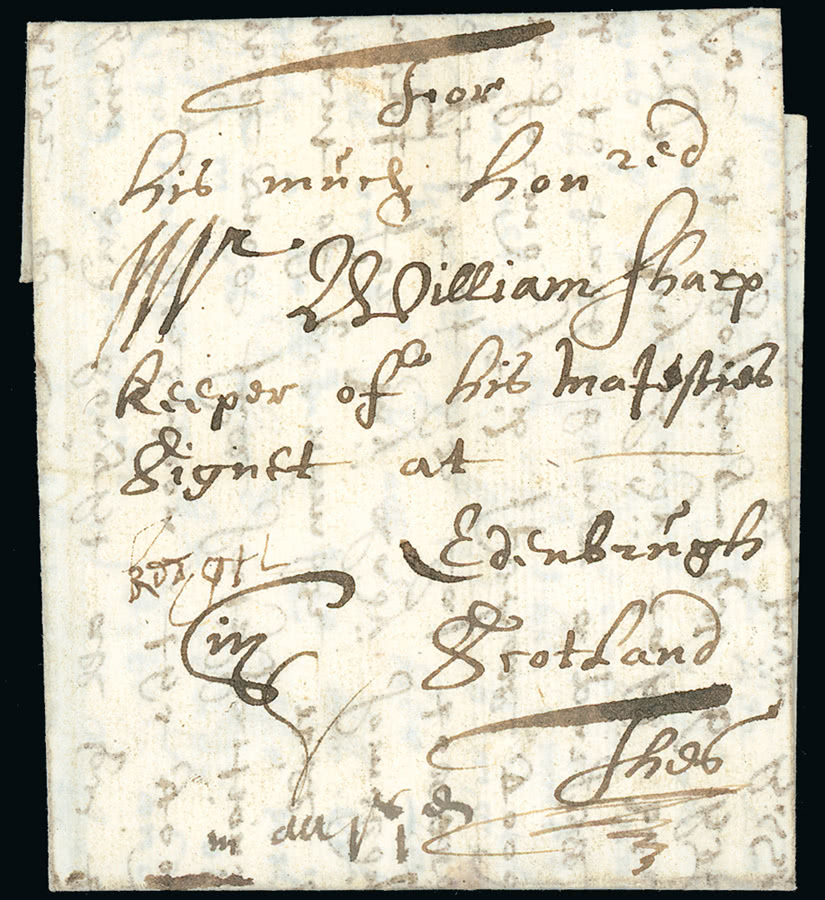 ffor
his much honred
Mr William Sharp
keeper of his Majesties
Signet at
Edenbrugh
in Scotland
Thes